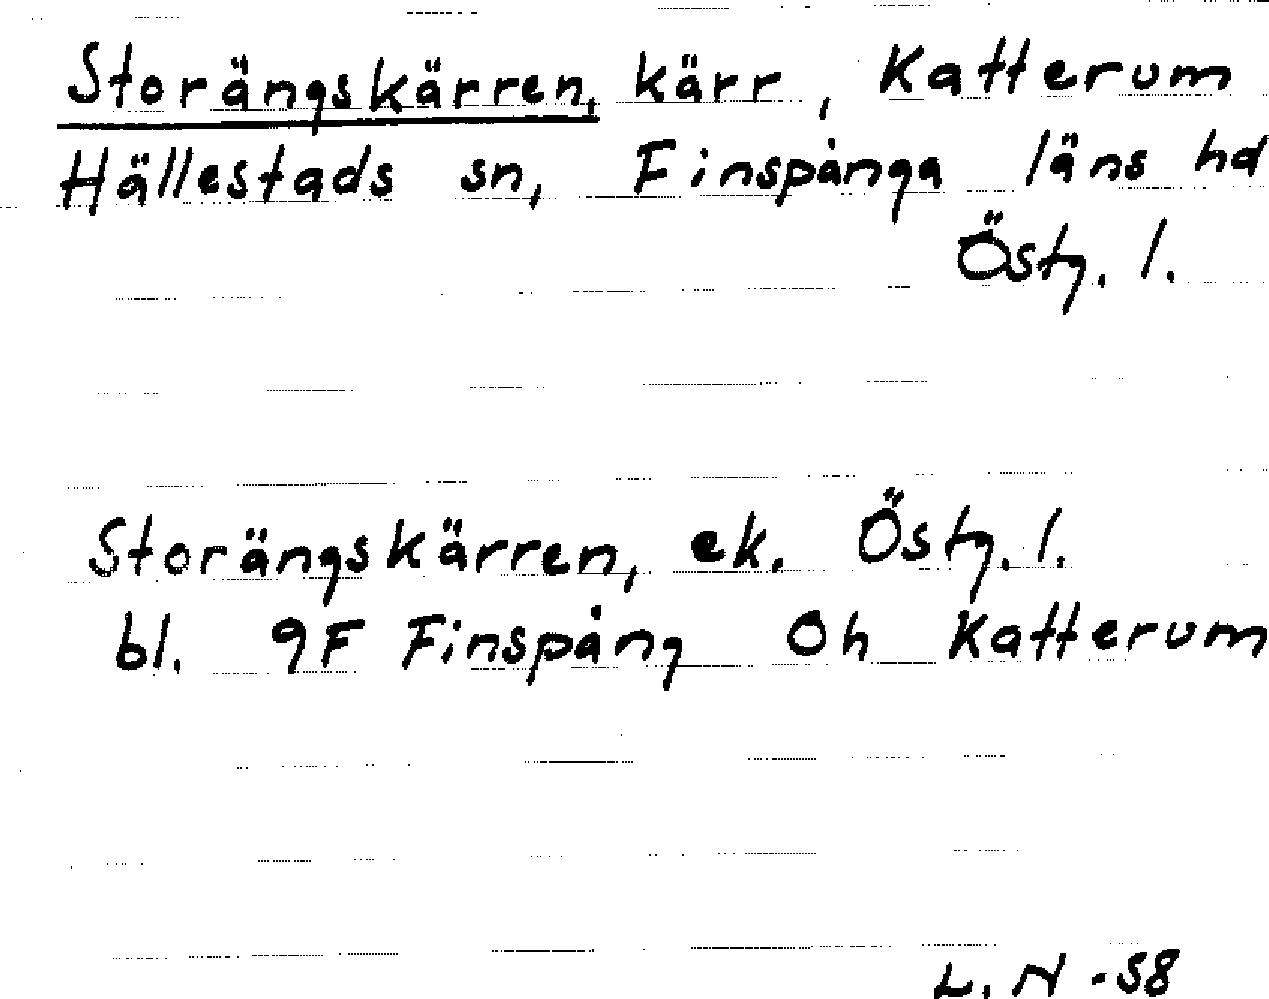 Storängskärren, kärr, Katterum
Hällestads sn, Finspånga läns hd
Östg. l.
Storängskärren, ek. Östg. l.
bl. 9F Finspång 0h Katterum
L. N -58